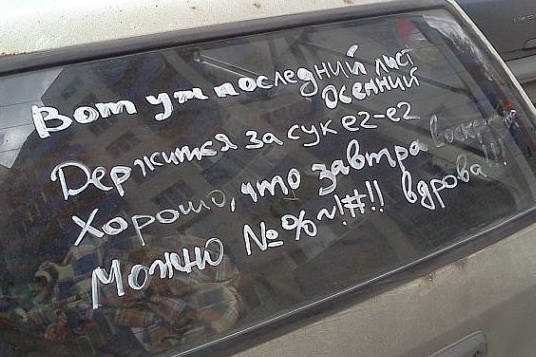 Вот уж последний лист
осенний
Держится за сук ег-ег
Хорошо, что завтра воскр
Можно №%~!#!! вдрова!!!